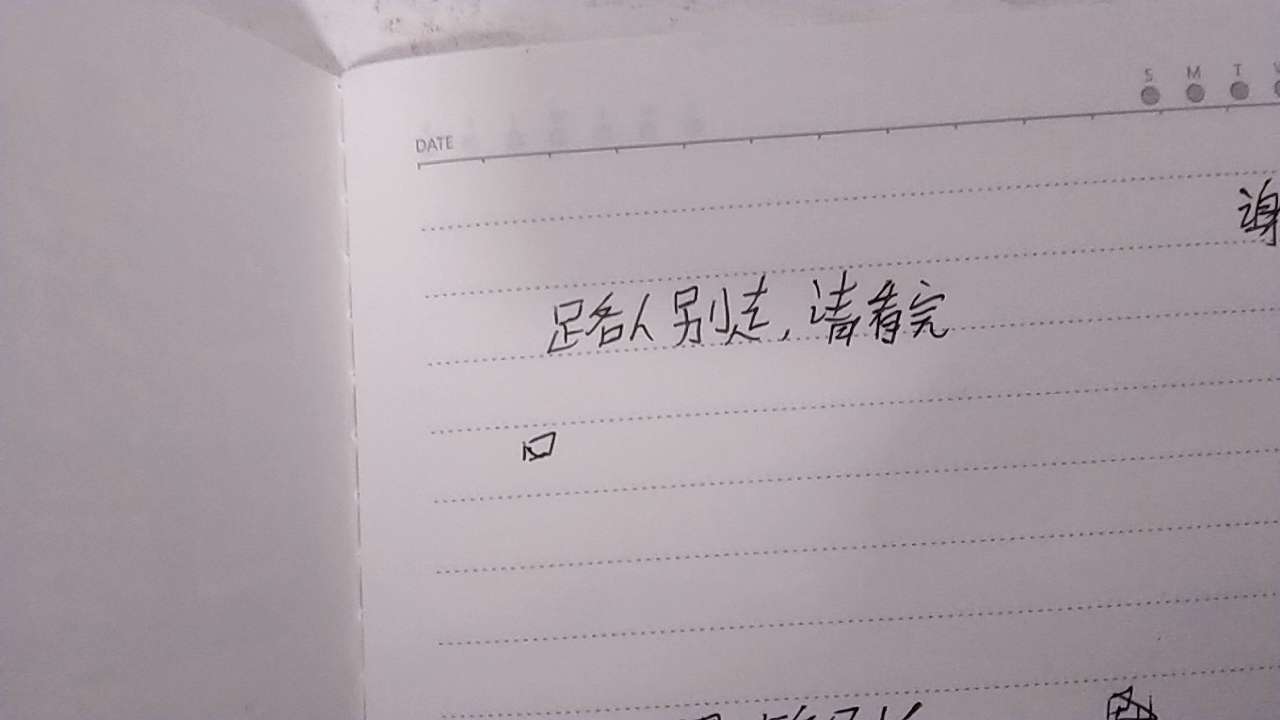 S M T
DATE
谢
路人别走，请看完
口